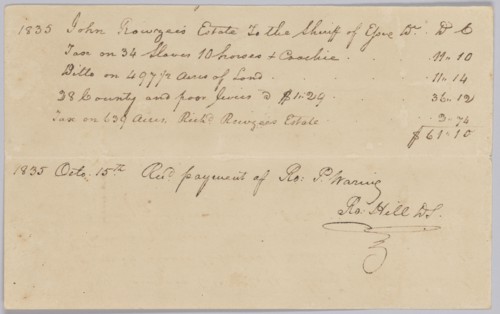 1835 John Rowzee's Estate To the Sheriff of Essex Dr. D C
Tax on 34 Slaves 10 horses & Coachee 11 . 10
Ditto on 497 1/2 Acres of Land 11 . 14
28 County and poor levies @ $1.29 36 . 12
Tax on 639 Acres Richd Rowzees Estate 3 . 74
$ 61 . 10
1835 Octo. 15th Recd payment of Ro: P. Waring
Ro. Hill D.S.